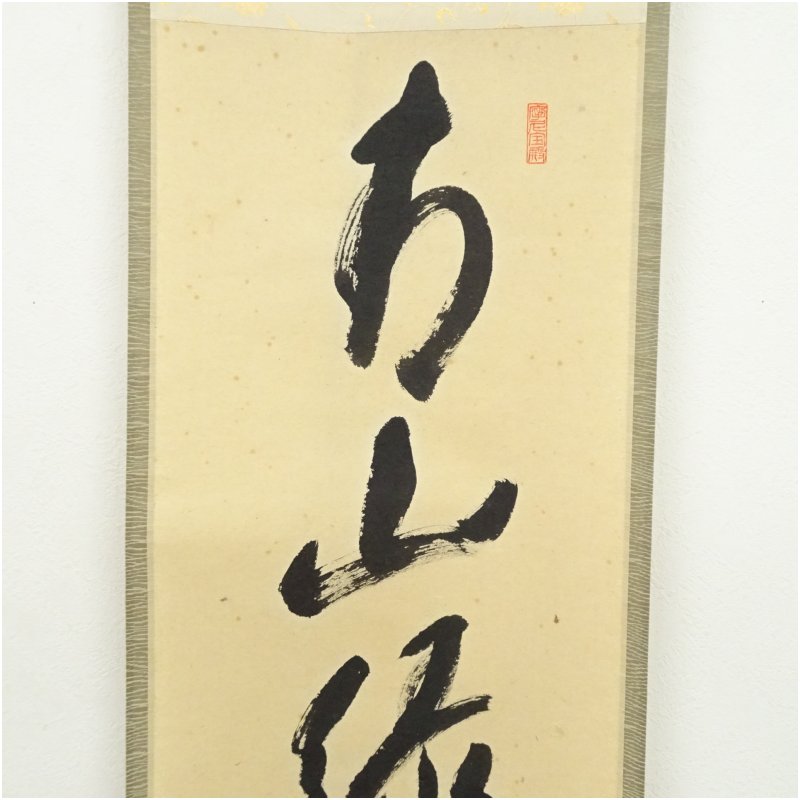 青山緑